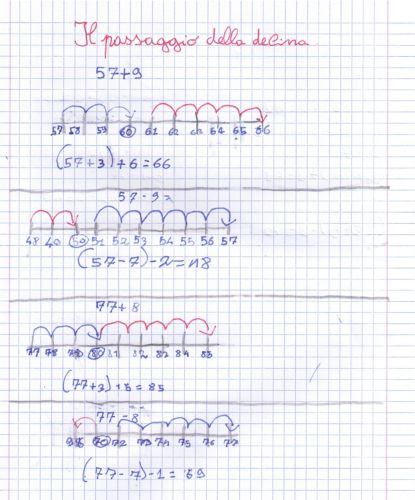 Il passaggio della decina
57+9
57 58 59 60 61 62 63 64 65 66
(57+3)+6=66
57-9=
48 49 50 51 52 53 54 55 56 57
(57-7)-2=48
77+8
77 78 79 80 81 82 83 84 85
(77+3)+5=85
77-8
70 72 73 74 75 76 77
(77-7)-1=69